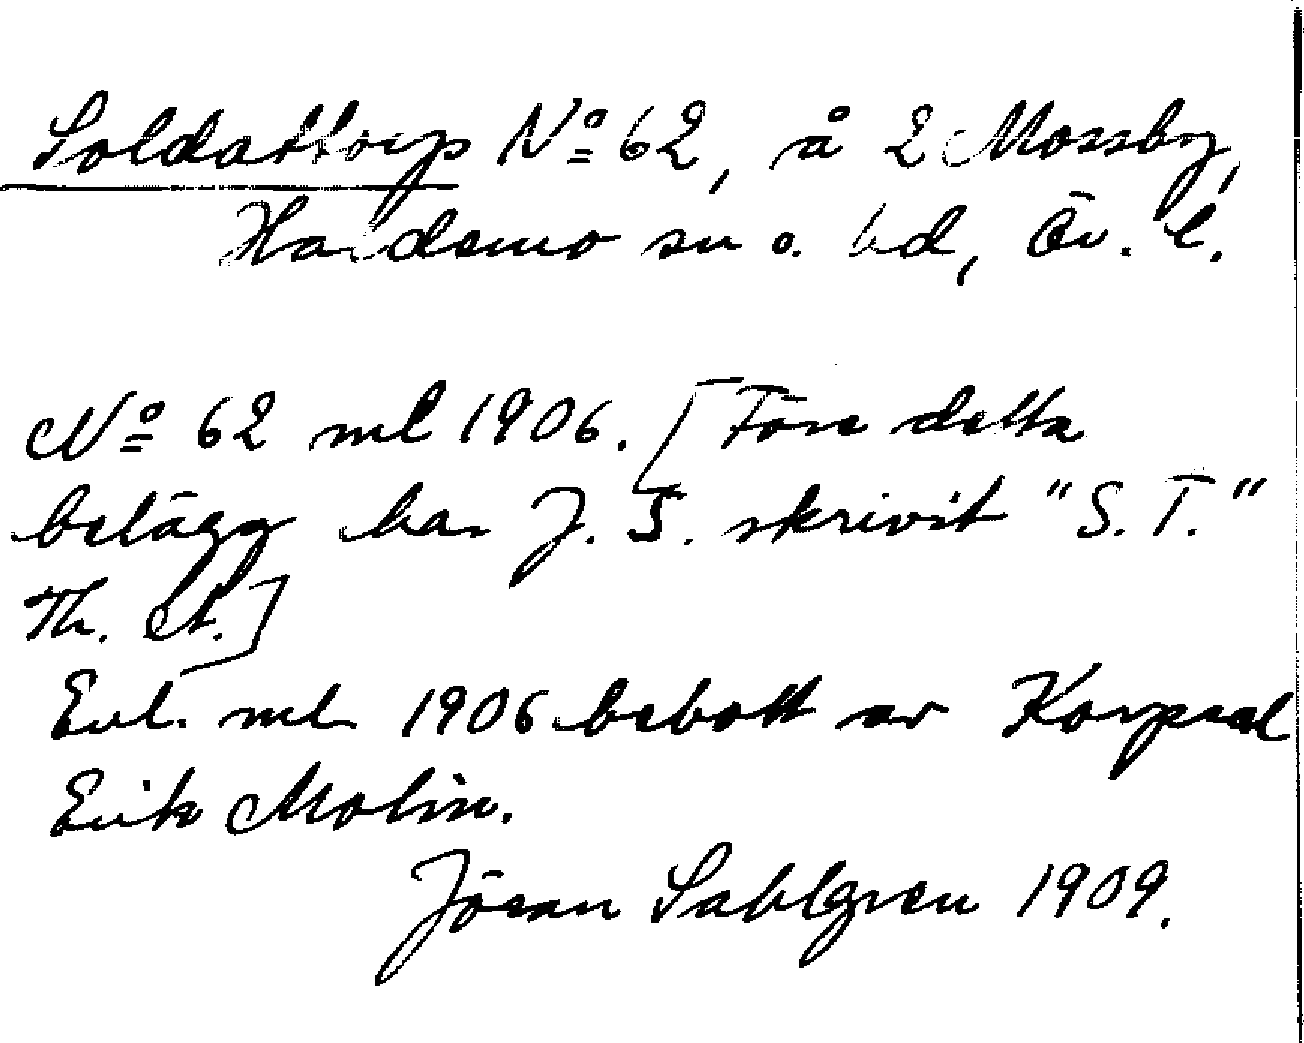 Soldattorp No 62, å 2 Mossby,
Hardemo sn o. hd, Ör. l.
No 62 ml 1906. [Före detta
belägg har J. S. skrivit "S. T."
Th. A.]
Enl. ml 1906 bebott av Korpral
Erik Molin.
Jöran Sahlgren 1909.